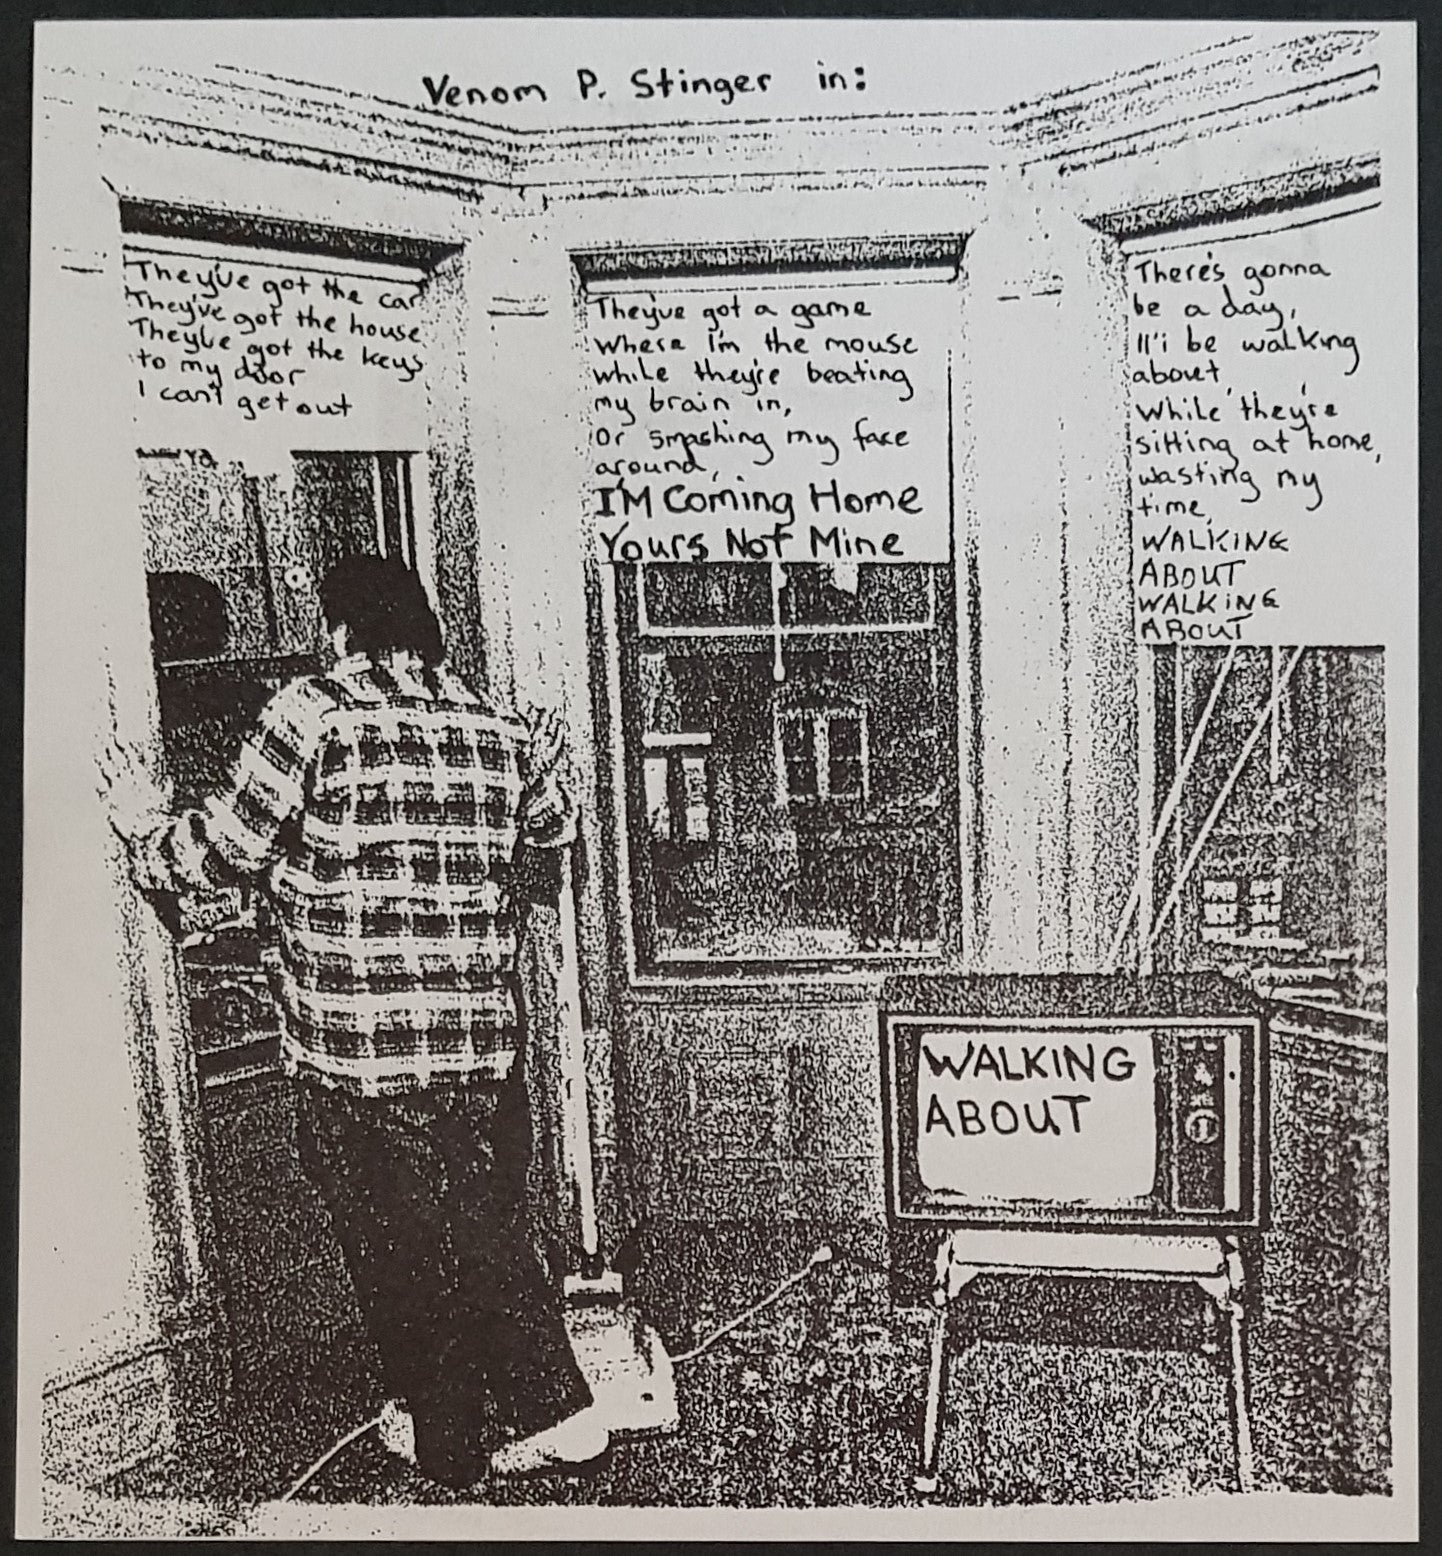 Venom P. Stinger in:
They've got the car
They've got the house
They've got the keys
to my door
I can't get out
They've got a game
Where I'm the mouse
while they're beating
my brain in,
Or smashing my face
around,
I'M Coming Home
Yours Not Mine
There's gonna
be a day,
ll'i be walking
about,
While they're
sitting at home,
wasting my
time,
WALKING
ABOUT
WALKING
ABOUT
WALKING
ABOUT